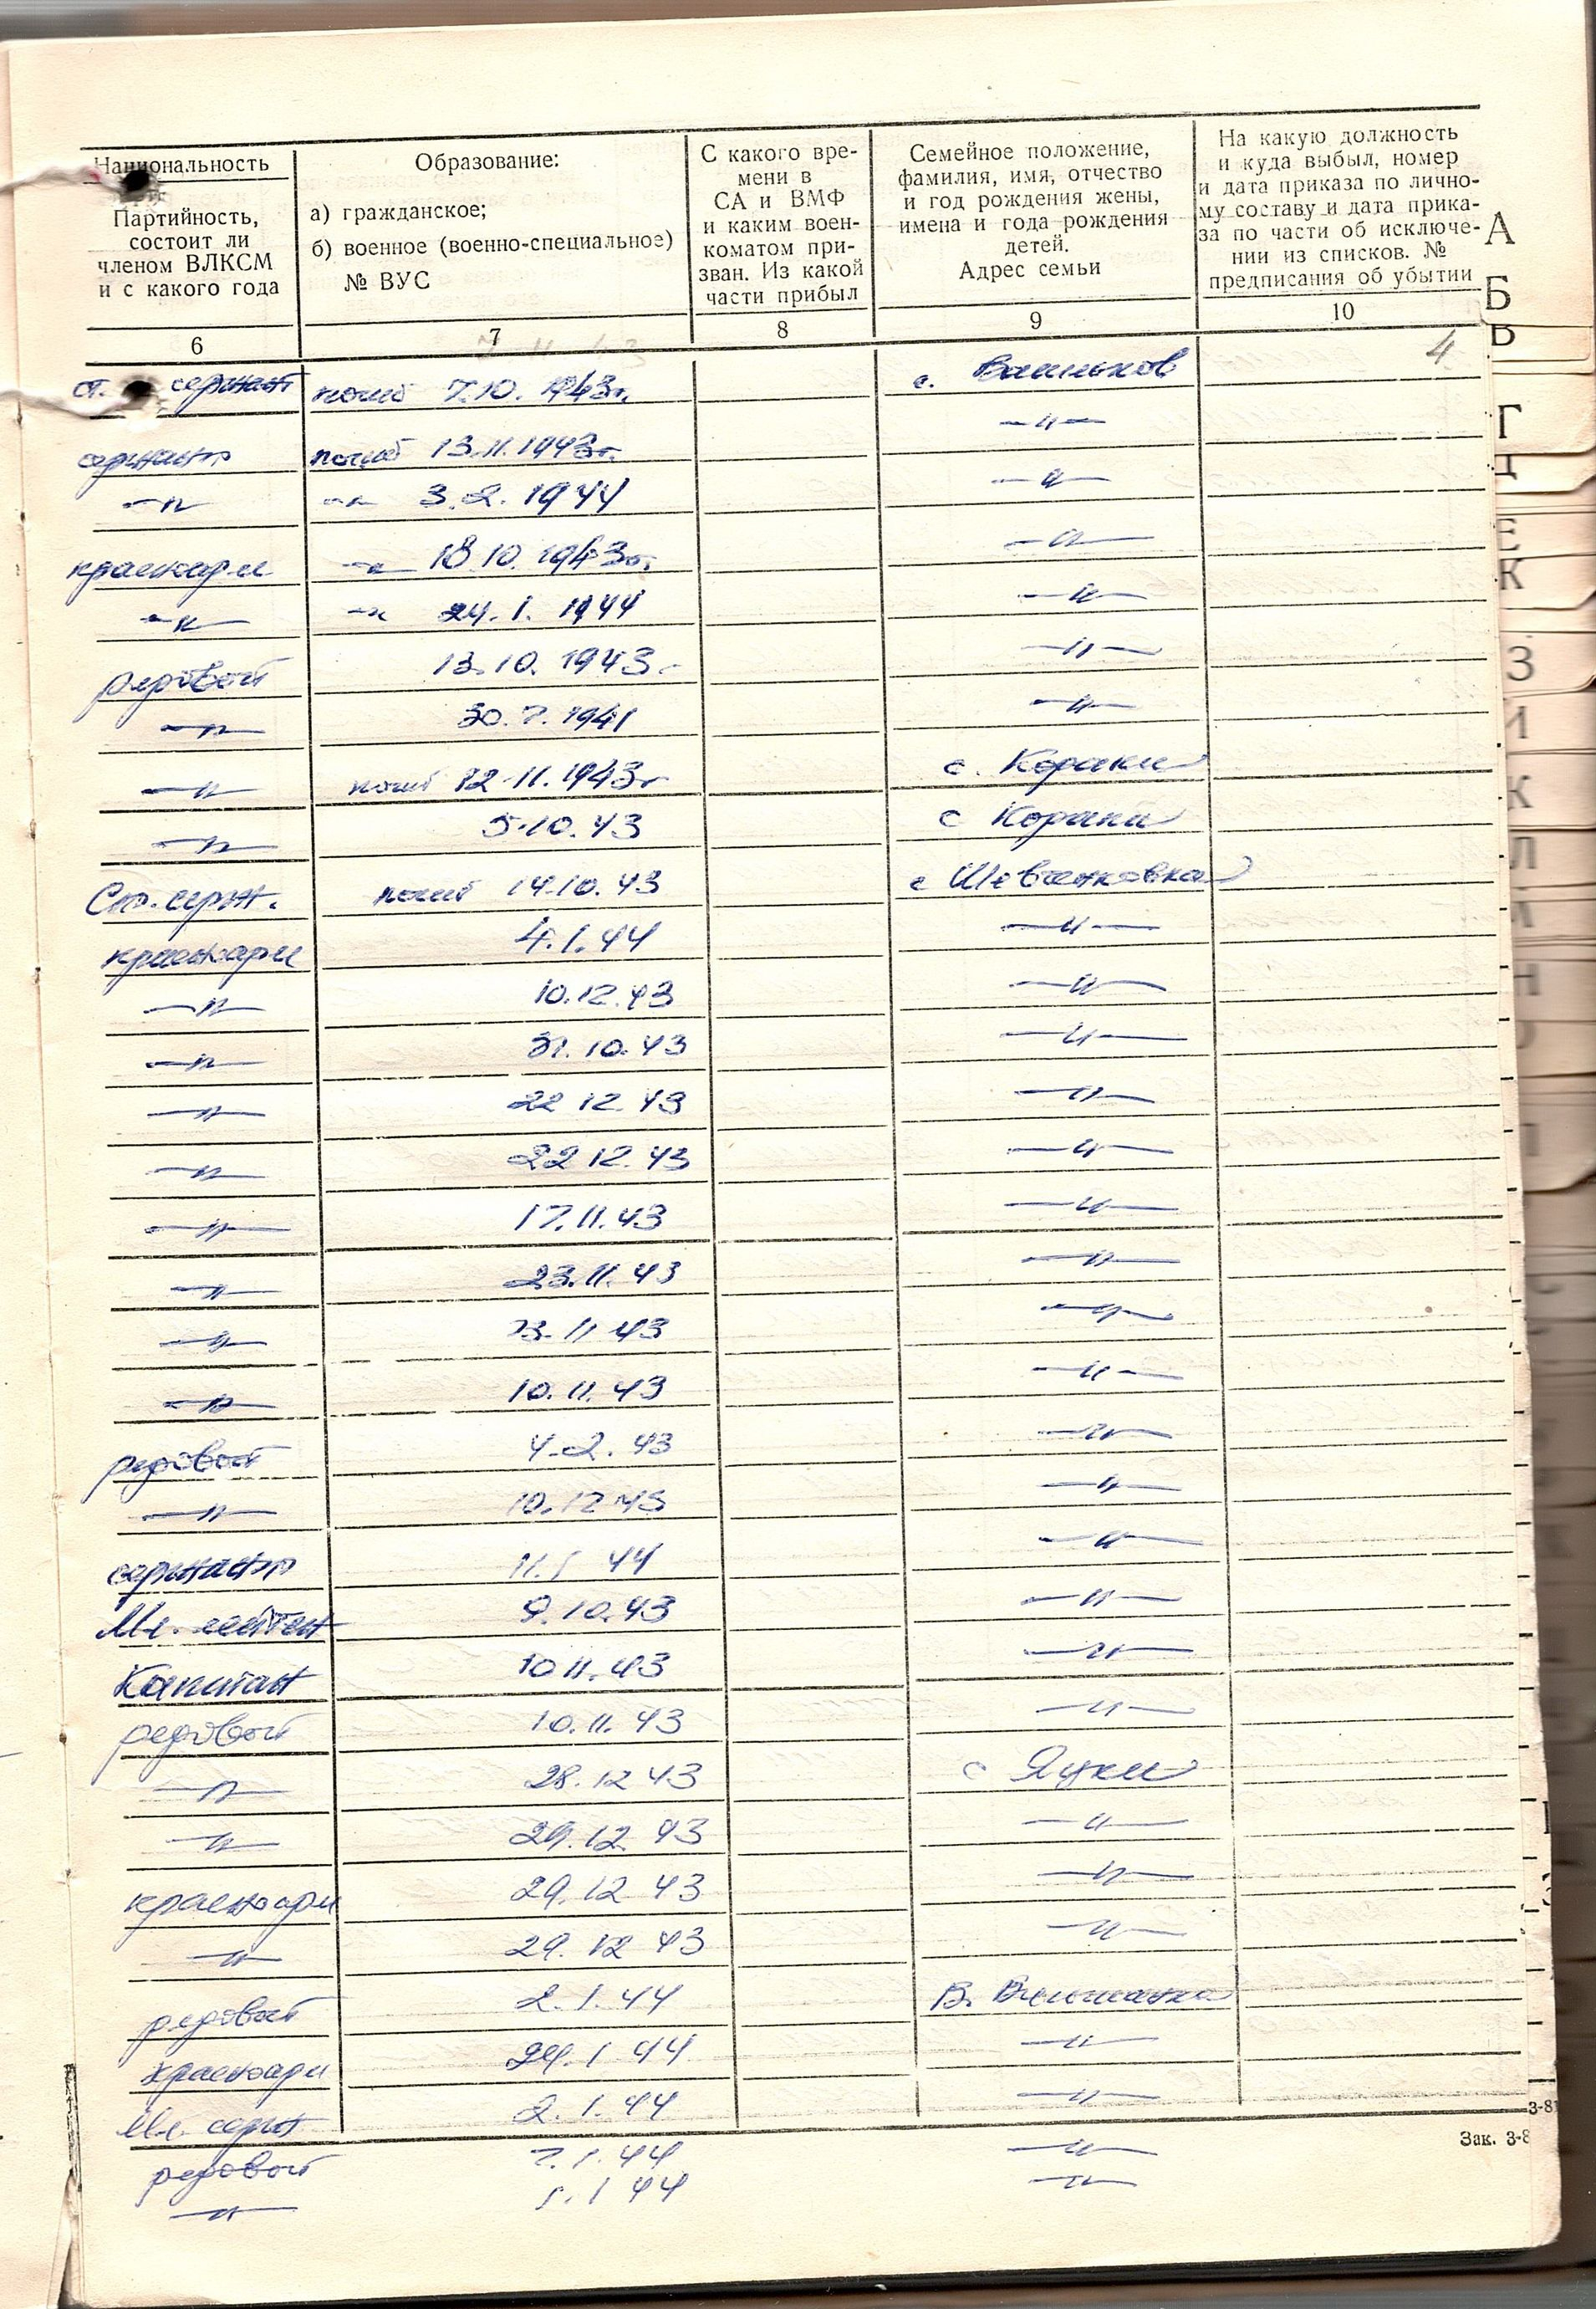 Национальность
Партийность,
состоит ли
членом ВЛКСМ
и с какого года
Образование:
а) гражданское;
б) военное (военно-специальное)
№ ВУС
С какого вре-
мени в
СА и ВМФ
и каким воен-
коматом при-
зван. Из какой
части прибыл
Семейное положение,
фамилия, имя, отчество
и год рождения жены,
имена и года рождения
детей.
Адрес семьи
На какую должность
и куда выбыл, номер
и дата приказа по лично-
му составу и дата прика-
за по части об исключе-
нии из списков. №
предписания об убытии
6 7 8 9 10
4
ст. сержант погиб 7.10. 1943г. с.
сержант погиб 13.11.1943г. —"—
—"— —"— 3.2.1944 —"—
красноарм —"— 18.10.1943г. —"—
—"— —"— 24.1.1944 —"—
рядовой 13.10.1943 —"—
—"— 30.7.1941 —"—
—"— погиб 12.11.1943г с.
—"— 5.10.43 с
Ст. серж. погиб 14.10.43 с Шевченковка
красноарм 4.1.44 —"—
—"— 10.12.43 —"—
—"— 31.10.43 —"—
—"— 22 12.43 —"—
—"— 22 12.43 —"—
—"— 17.11.43 —"—
—"— 23.11.43 —"—
—"— 11 43 —"—
—"— 10.11.43 —"—
рядовой 4.2.43 —"—
—"— 10.12 43 —"—
сержант 11.1 44 —"—
Мл. лейтен 9.10.43 —"—
Капитан 10 11.43 —"—
рядовой 10.11.43 —"—
—"— 28.12 43 с Яцки
—"— 29.12 43 —"—
красноарм 29.12 43 —"—
—"— 29.12 43 —"—
рядовой 2.1.44 В.
красноарм 24.1.44 —"—
Мл. серж 2.1.44 —"—
рядовой 7.1.44 —"—
—"— 1 44 —"—
Зак. 3-8
А
Б
В
Г
Д
Е
К
З
И
К
Л
М
Н
О
П